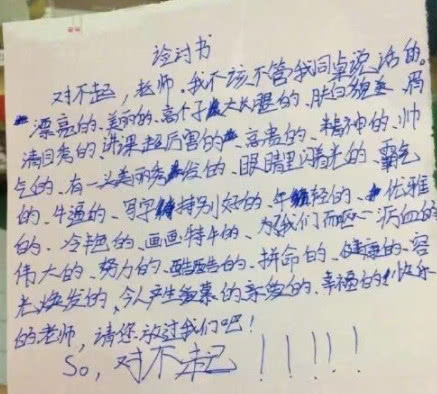 诊讨书
对不起,老师,我不该不管我同桌说话的。
漂亮的、美丽的、高个子大长腿的、肤白貌美、眉
清目秀的、讲课超厉害的、高贵的、精神的、帅
气的、有一头美丽秀发的、眼睛里闪光的、霸气
的、牛逼的、写字特别好的、年轻的、优雅
的、冷艳的、画画特牛的、为了我们而呕心沥血的
伟大的、努力的、酷酷的、拼命的、健康的、容
光焕发的、令人产生羡慕的亲爱的、幸福的、快乐
的老师,请您放过我们吧!
So,对不起!!!!!